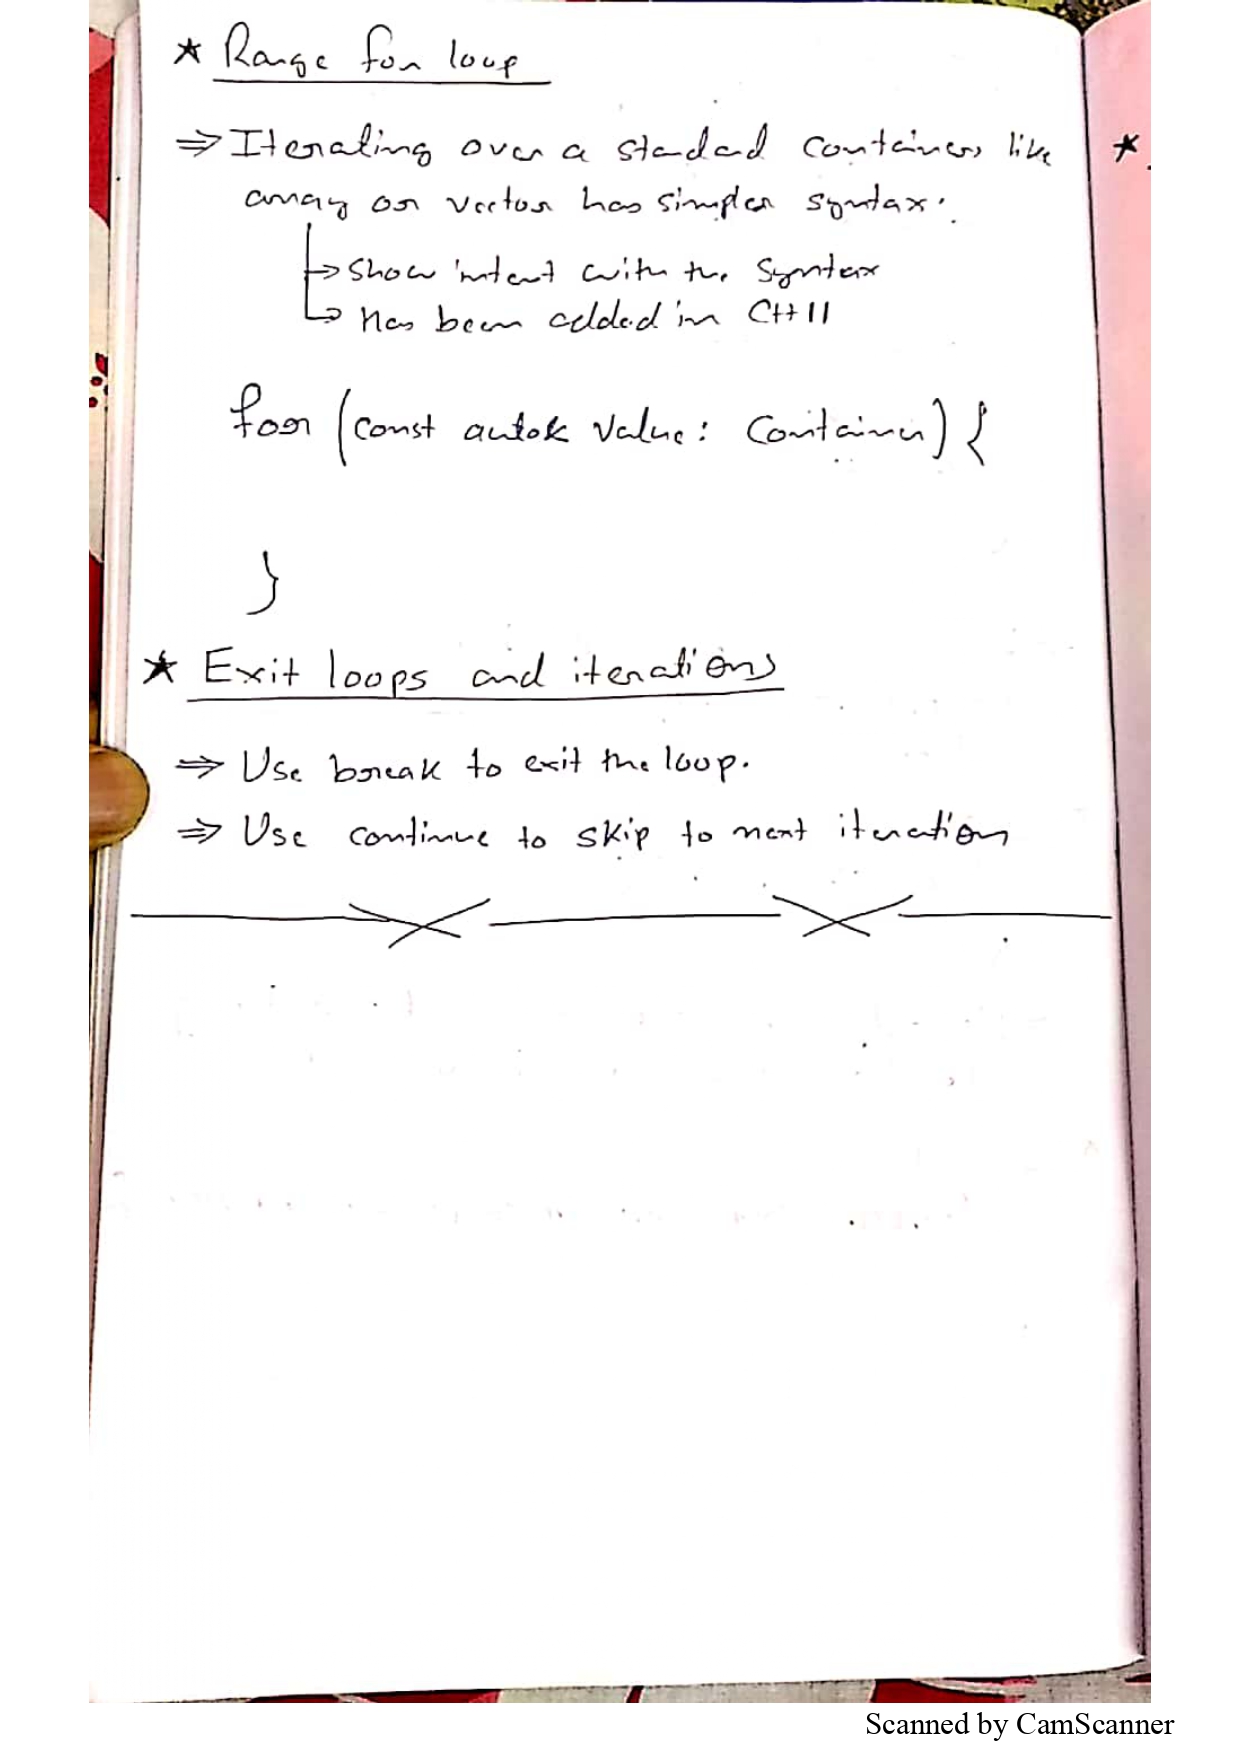 ★ Range for loop
⇒ Iterating over a standard containers like
array or vector has simpler syntax.
→ Show intent with the syntax
→ has been added in C++ 11
for (const auto& value: Container) {
}
★ Exit loops and iterations
⇒ Use break to exit the loop.
⇒ Use continue to skip to next iteration
Scanned by CamScanner